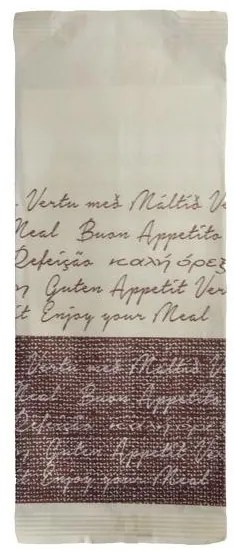 Vertu með Máltið Ve
Meal Buon Appetito
Refeição καλή όρεξ
Guten Appetit Ver
it Enjoy your Meal
Vertu með Máltið V
Meal Buon Appetito
Refeição καλή όρεξ
Guten Appetit Ver
it Enjoy your Meal